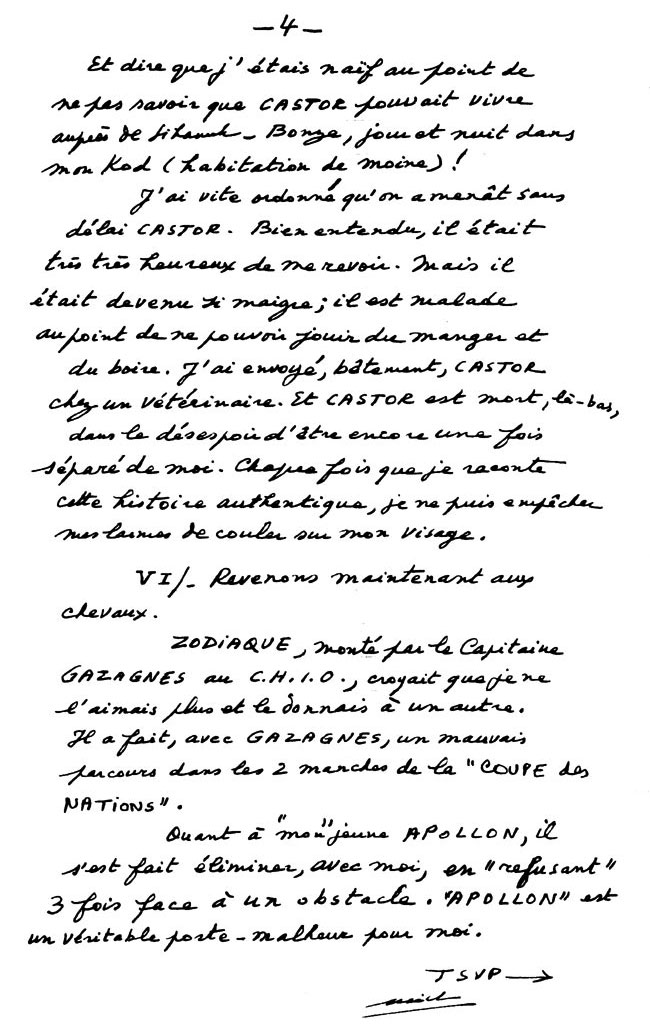 — 4 —
Et dire que j'étais naïf au point de
ne pas savoir que CASTOR pouvait vivre
auprès de Sihanouk - Bonze, jour et nuit dans
mon Kod (habitation de moine) !
J'ai vite ordonné qu'on amenât sans
délai CASTOR. Bien entendu, il était
très très heureux de me revoir. Mais il
était devenu si maigre ; il est malade
au point de ne pouvoir jouir du manger et
du boire. J'ai envoyé, bêtement, CASTOR
chez un vétérinaire. Et CASTOR est mort, là-bas,
dans le désespoir d'être encore une fois
séparé de moi. Chaque fois que je raconte
cette histoire authentique, je ne puis empêcher
mes larmes de couler sur mon visage.
VI/- Revenons maintenant aux
chevaux.
ZODIAQUE, monté par le Capitaine
GAZAGNES au C.H.I.O., croyait que je ne
l'aimais plus et le donnais à un autre.
Il a fait, avec GAZAGNES, un mauvais
parcours dans les 2 manches de la "COUPE des
NATIONS".
Quant à "mon" jeune APOLLON, il
s'est fait éliminer, avec moi, en "refusant"
3 fois face à un obstacle. "APOLLON" est
un véritable porte-malheur pour moi.
TSVP →